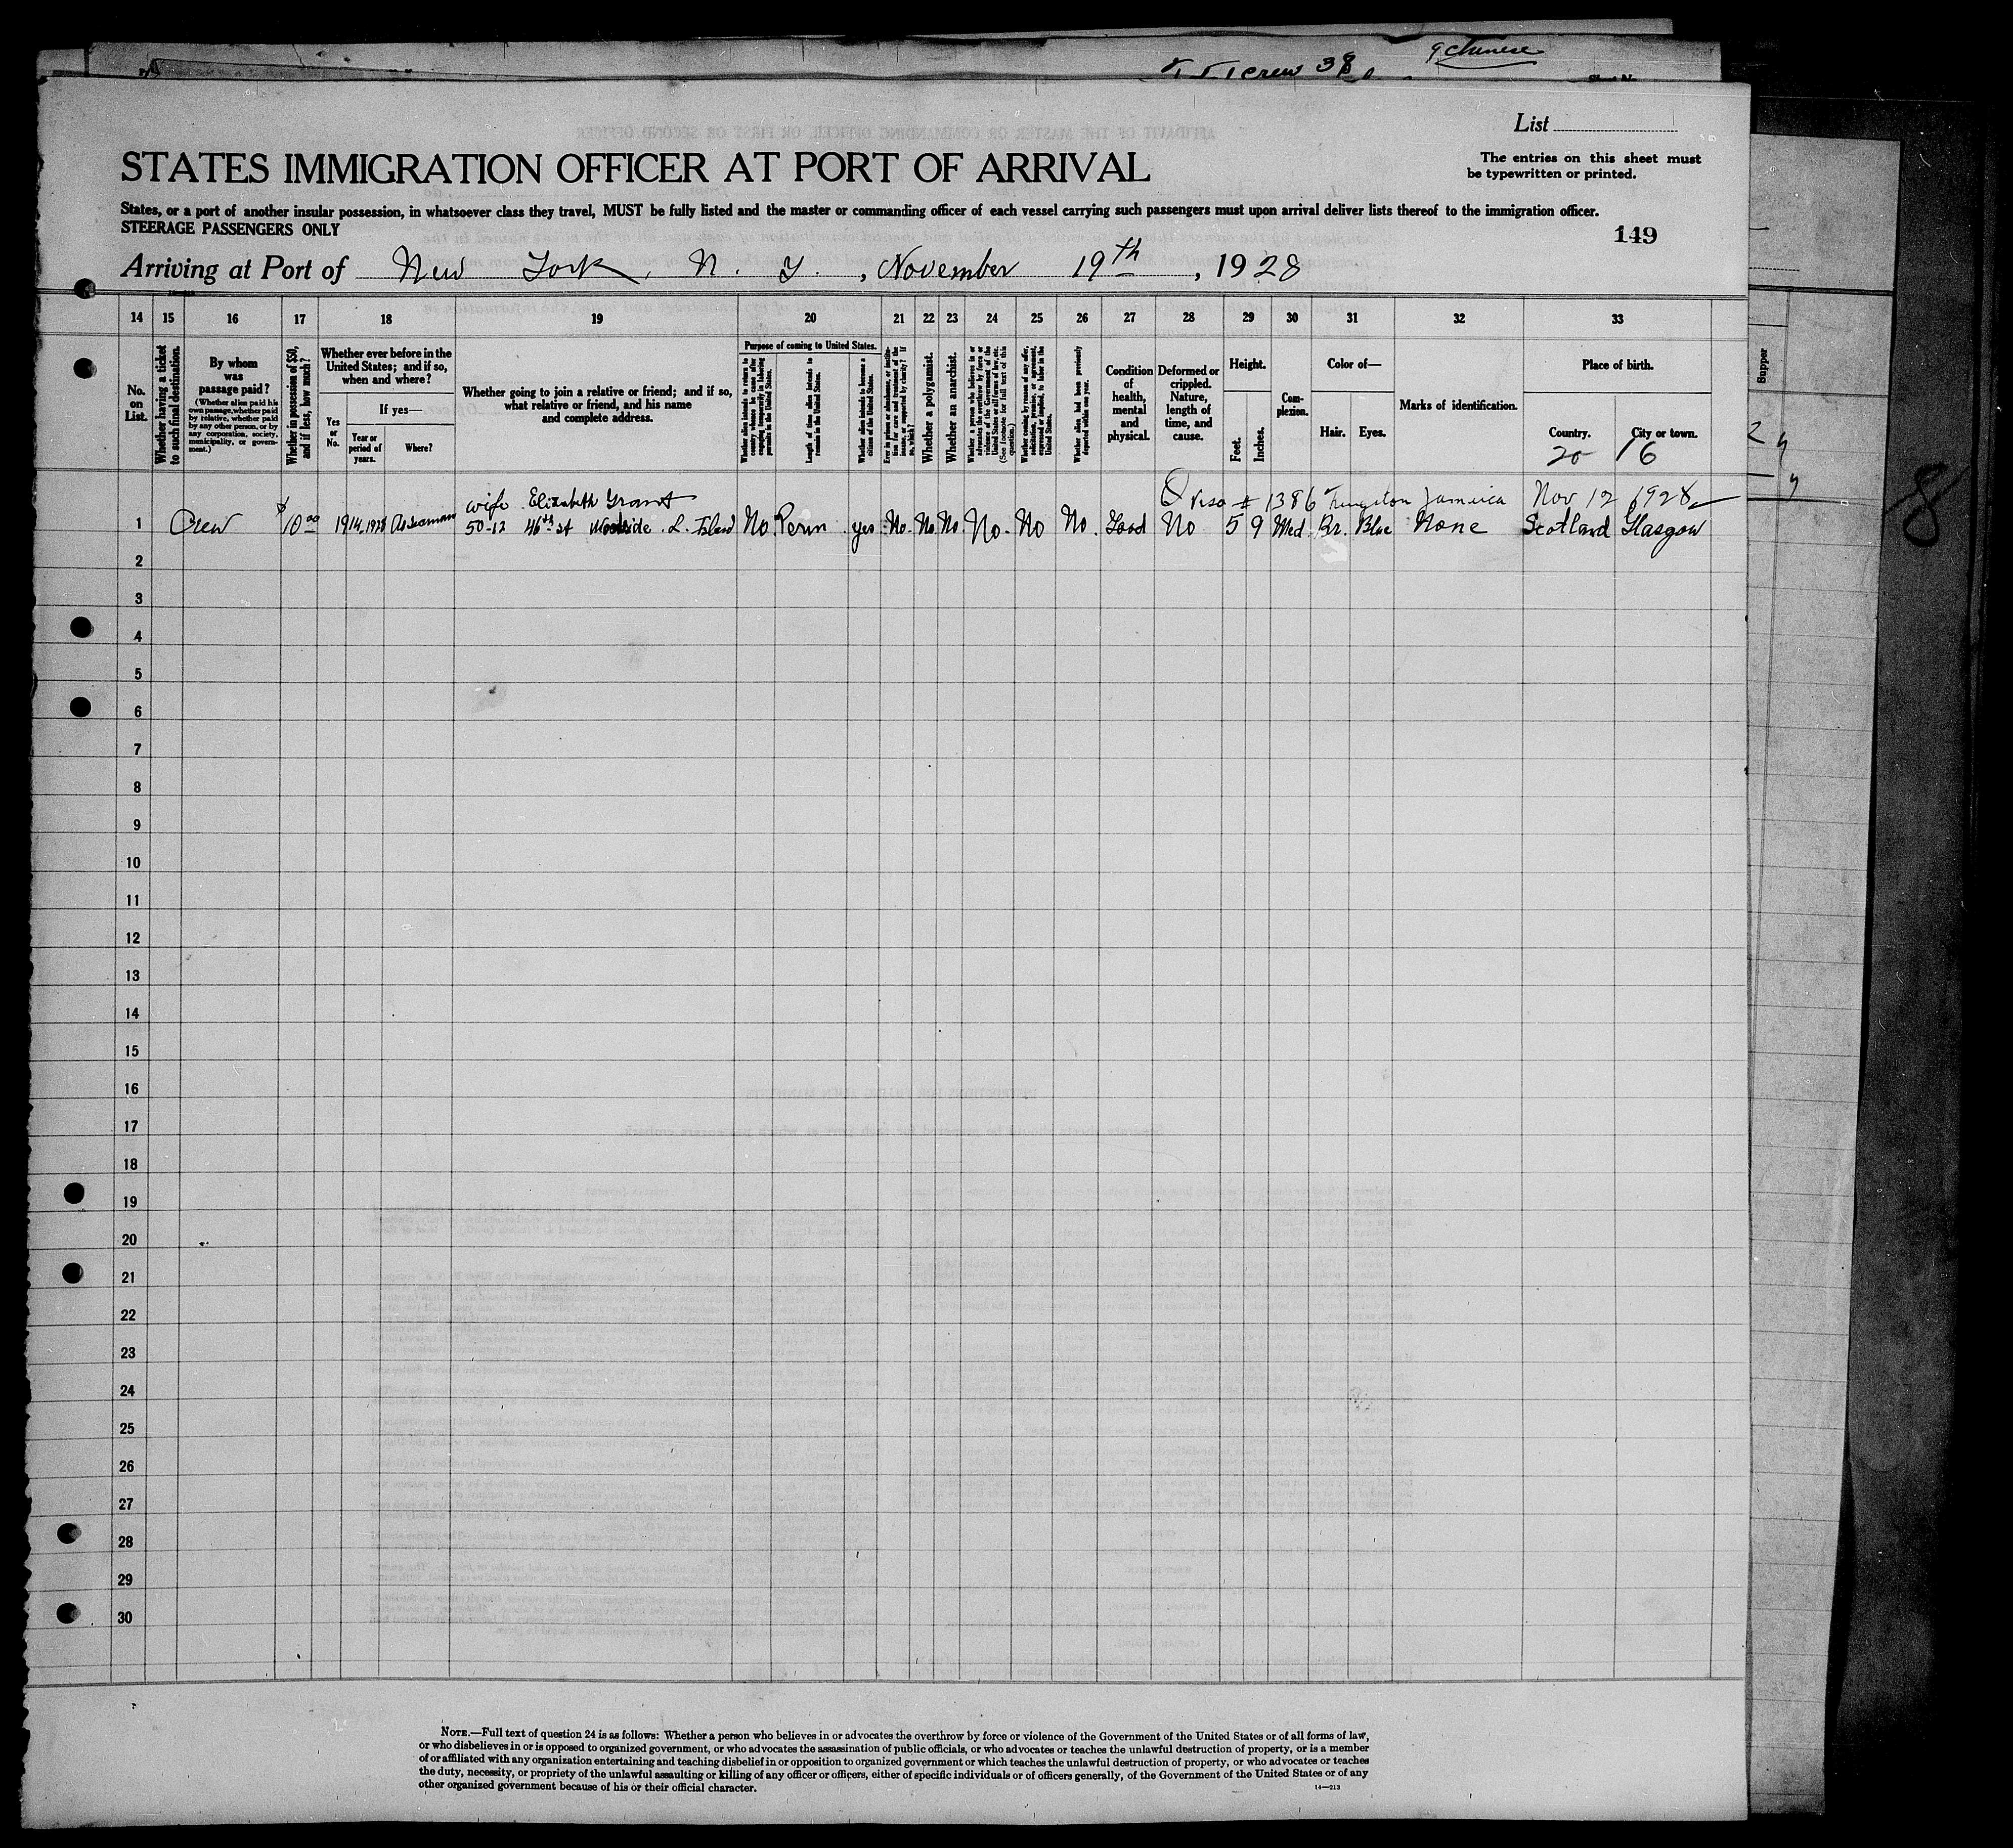 crew 38
9 Chinese
List
STATES IMMIGRATION OFFICER AT PORT OF ARRIVAL
The entries on this sheet must
be typewritten or printed.
States, or a port of another insular possession, in whatsoever class they travel, MUST be fully listed and the master or commanding officer of each vessel carrying such passengers must upon arrival deliver lists thereof to the immigration officer.
STEERAGE PASSENGERS ONLY
149
Arriving at Port of New York, N. Y., November 19th, 1928
14 15 16 17 18 19 20 21 22 23 24 25 26 27 28 29 30 31 32 33
No. on List.
Whether having a ticket to such final destination.
By whom was passage paid?
(Whether alien paid his own passage, whether paid by relative, whether paid by any other person, or by any corporation, society, municipality, or government.)
Whether in possession of $50, and if less, how much?
Whether ever before in the United States; and if so, when and where?
Yes or No.
If yes—
Year or period of years.
Where?
Whether going to join a relative or friend; and if so, what relative or friend, and his name and complete address.
Purpose of coming to United States.
Whether alien intends to return to country whence he came after engaging temporarily in laboring pursuits in the United States.
Length of time alien intends to remain in the United States.
Whether alien intends to become a citizen of the United States.
Ever in prison or almshouse, or institution for care and treatment of the insane, or supported by charity? If so, which?
Whether a polygamist.
Whether an anarchist.
(See footnote for full text of this question.)
Whether coming by reason of any offer, solicitation, promise, or agreement, expressed or implied, to labor in the United States.
Whether alien had been previously deported within one year.
Condition of health, mental and physical.
Deformed or crippled. Nature, length of time, and cause.
Height.
Feet.
Inches.
Complexion.
Color of—
Hair. Eyes.
Marks of identification.
Place of birth.
Country. City or town.
20 16
wife Elizabeth Grant
Visa # 1386 Kingston Jamaica Nov 12 1928
1 Crew $10.00 1914, 1928 As seaman 50-12 46th st Woodside L. Island No Perm yes No. No. No. No. No No. Good No 5 9 Med. Br. Blue None Scotland Glasgow
2
3
4
5
6
7
8
9
10
11
12
13
14
15
16
17
18
19
20
21
22
23
24
25
26
27
28
29
30
NOTE.—Full text of question 24 is as follows: Whether a person who believes in or advocates the overthrow by force or violence of the Government of the United States or of all forms of law,
or who disbelieves in or is opposed to organized government, or who advocates the assassination of public officials, or who advocates or teaches the unlawful destruction of property, or is a member
of or affiliated with any organization entertaining and teaching disbelief in or opposition to organized government or which teaches the unlawful destruction of property, or who advocates or teaches
the duty, necessity, or propriety of the unlawful assaulting or killing of any officer or officers, either of specific individuals or of officers generally, of the Government of the United States or of any
other organized government because of his or their official character.
14—213
Supper